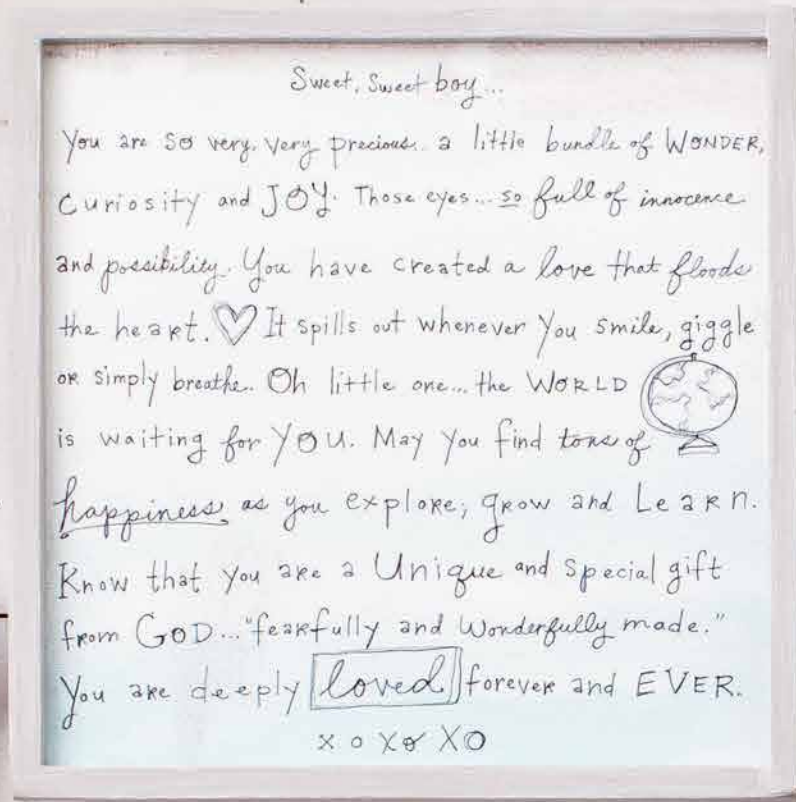 Sweet, Sweet boy...
You are so very, very precious.. a little bundle of WONDER,
Curiosity and JOY. Those eyes... so full of innocence
and possibility. You have created a love that floods
the heart. ♡ It spills out whenever you smile, giggle
or simply breathe. Oh little one... the WORLD
is waiting for YOU. May you find tons of
happiness, as you explore, grow and Learn.
Know that you are a Unique and special gift
from GOD... "fearfully and Wonderfully made."
You are deeply loved forever and EVER.
x o x o X O